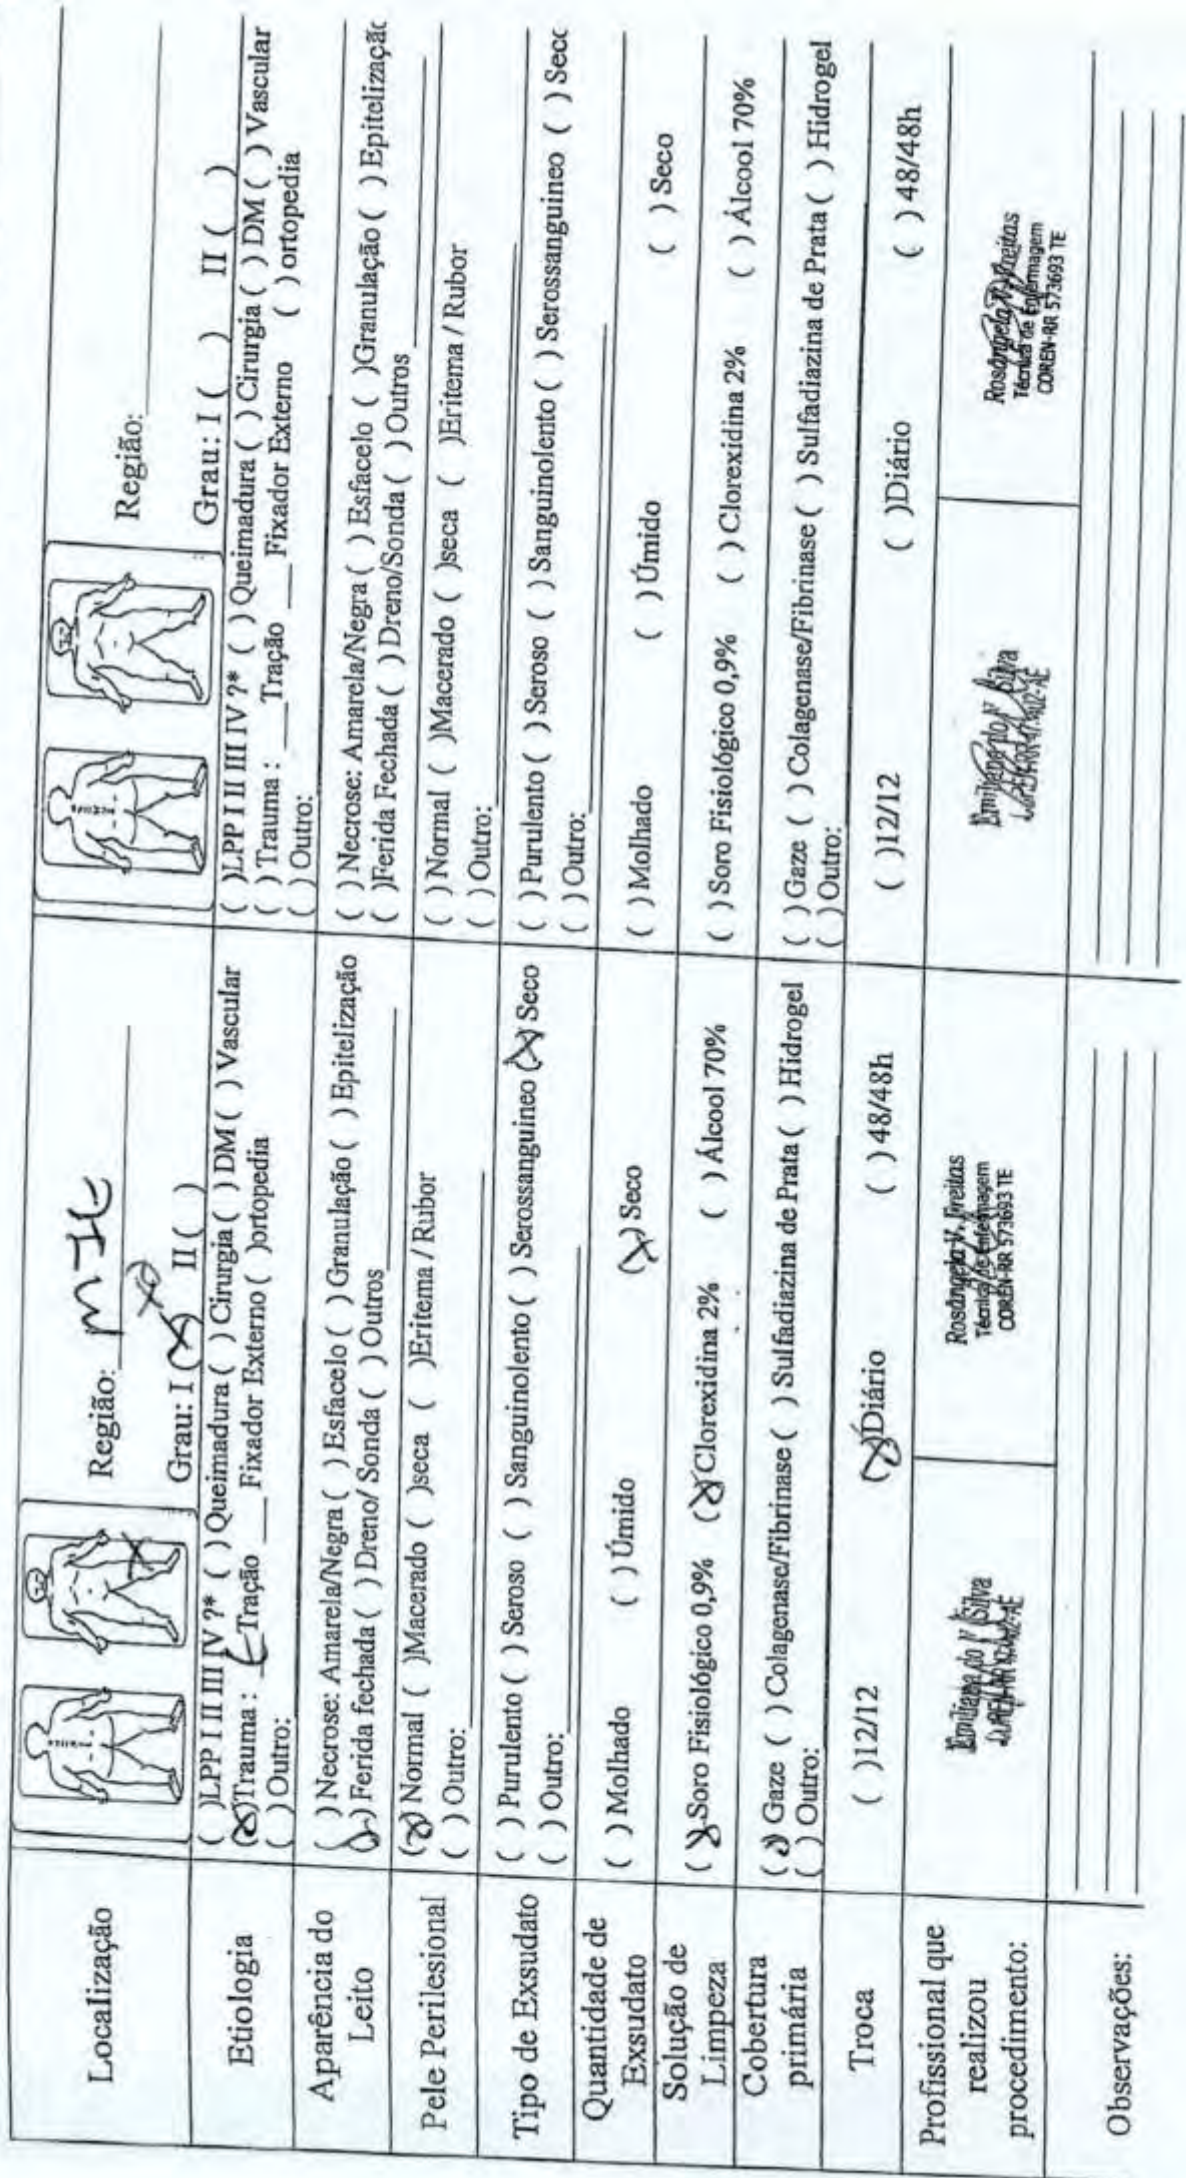 Localização
Região: MIE
Grau: I (X) II ( )
Região:
Grau: I ( ) II ( )
Etiologia
( )LPP I II III IV ?* ( ) Queimadura ( ) Cirurgia ( ) DM ( ) Vascular
(X)Trauma : Tração ___Fixador Externo ( )ortopedia
( ) Outro:
( )LPP I II III IV ?* ( ) Queimadura ( ) Cirurgia ( ) DM ( ) Vascular
( ) Trauma : ___Tração ___Fixador Externo ( ) ortopedia
( ) Outro:
Aparência do
Leito
( ) Necrose: Amarela/Negra ( ) Esfacelo ( )Granulação ( ) Epitelização
(X) Ferida fechada ( ) Dreno/ Sonda ( ) Outros
( ) Necrose: Amarela/Negra ( ) Esfacelo ( )Granulação ( ) Epitelizaçãc
( )Ferida Fechada ( ) Dreno/Sonda ( ) Outros
Pele Perilesional
(X) Normal ( )Macerado ( )seca ( )Eritema / Rubor
( ) Outro:
( ) Normal ( )Macerado ( )seca ( )Eritema / Rubor
( ) Outro:
Tipo de Exsudato
( ) Purulento ( ) Seroso ( ) Sanguinolento ( ) Serossanguineo (X) Seco
( ) Outro:
( ) Purulento ( ) Seroso ( ) Sanguinolento ( ) Serossanguineo ( ) Secc
( ) Outro:
Quantidade de
Exsudato
( ) Molhado ( ) Úmido (X) Seco
( ) Molhado ( ) Úmido ( ) Seco
Solução de
Limpeza
(X) Soro Fisiológico 0,9% (X) Clorexidina 2% ( ) Álcool 70%
( ) Soro Fisiológico 0,9% ( ) Clorexidina 2% ( ) Álcool 70%
Cobertura
primária
(X) Gaze ( ) Colagenase/Fibrinase ( ) Sulfadiazina de Prata ( ) Hidrogel
( ) Outro:
( ) Gaze ( ) Colagenase/Fibrinase ( ) Sulfadiazina de Prata ( ) Hidrogel
( ) Outro:
Troca
( )12/12 (X)Diário ( ) 48/48h
( )12/12 ( )Diário ( ) 48/48h
Profissional que
realizou
procedimento:
Silva
Rosângela V. Freitas
Técnica de Enfermagem
COREN-RR 573693 TE
Silva
Rosângela V. Freitas
Técnica de Enfermagem
COREN-RR 573693 TE
Observações: